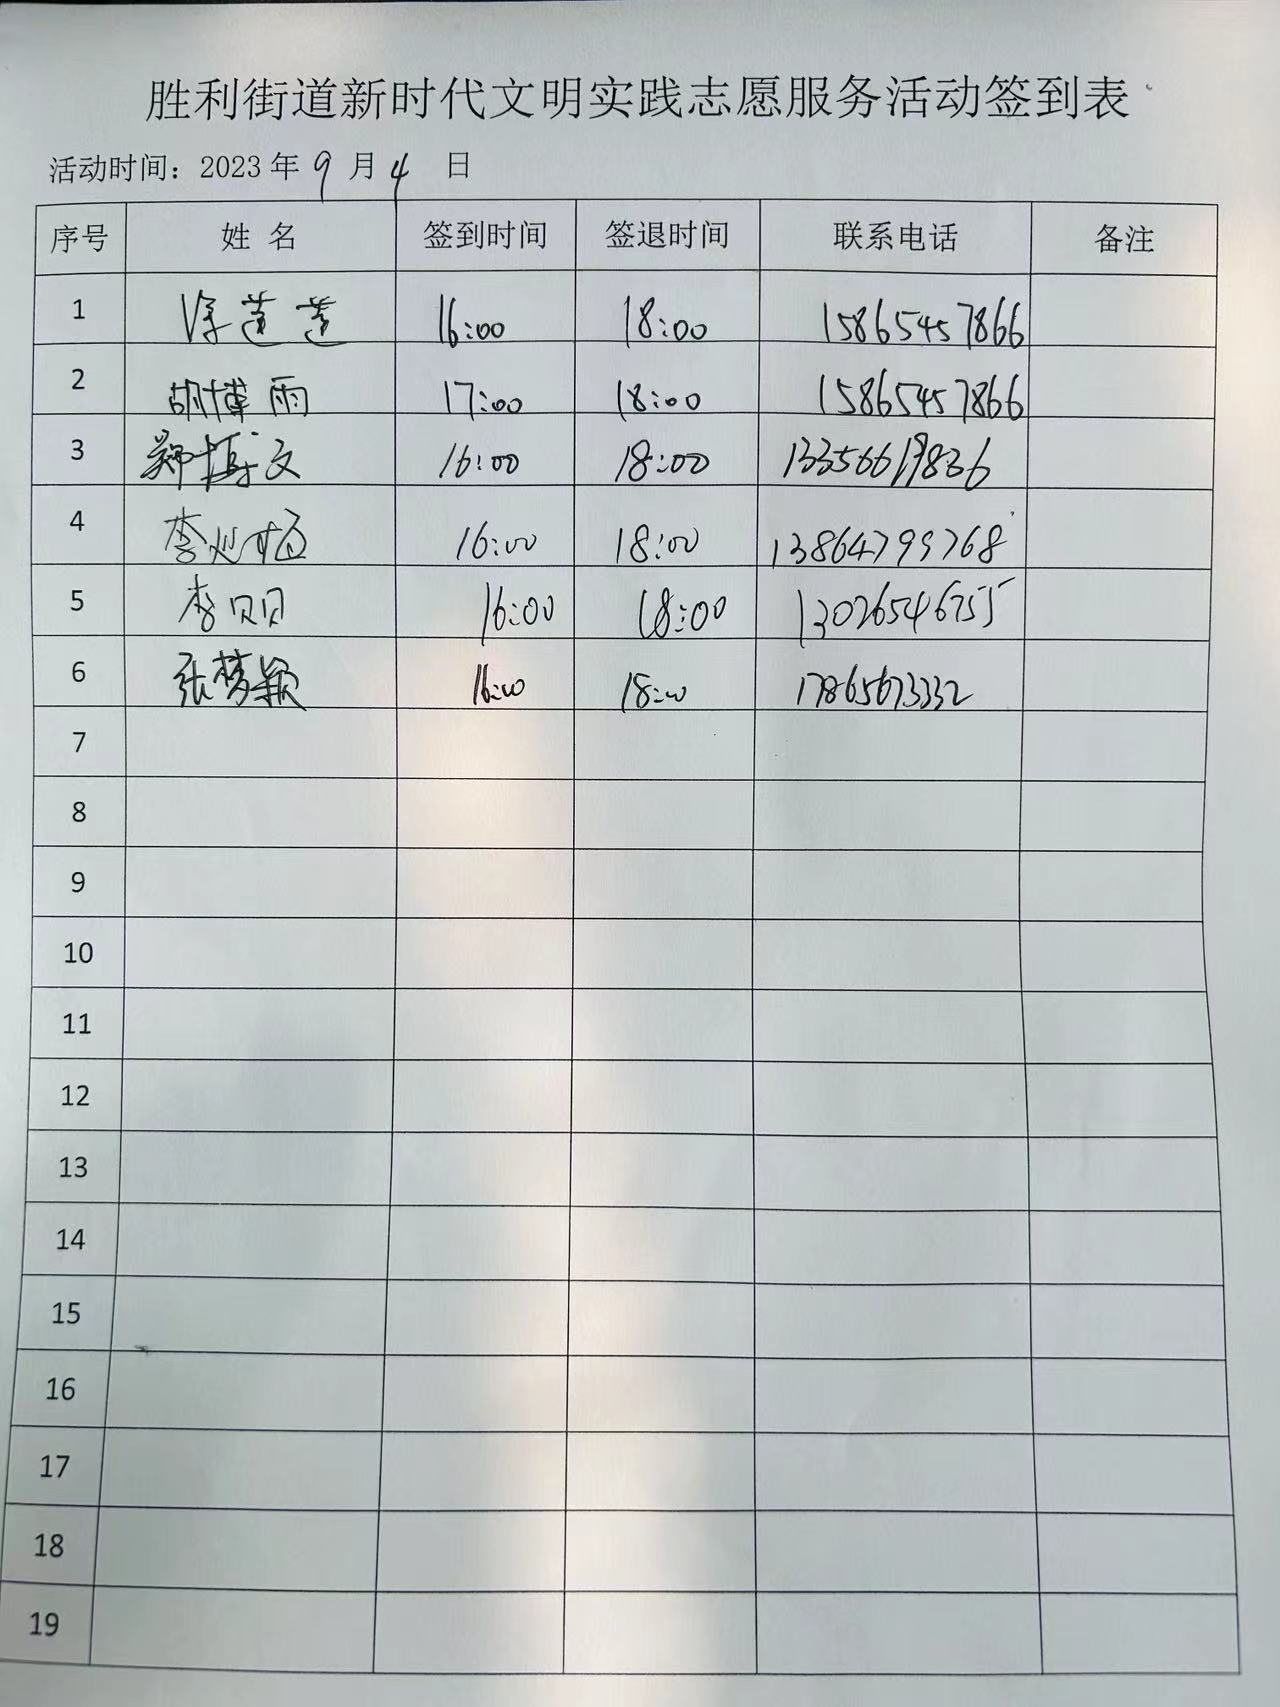 胜利街道新时代文明实践志愿服务活动签到表
活动时间：2023 年 9 月 4 日
序号 姓 名 签到时间 签退时间 联系电话 备注
1 徐莲莲 16:00 18:00 15865457866
2 胡博雨 17:00 18:00 15865457866
3 郑博文 16:00 18:00
4 李 16:00 18:00 13864799768
5 李贝贝 16:00 18:00 13026546755
6 张梦颖 16:00 18:00 17865673332
7
8
9
10
11
12
13
14
15
16
17
18
19